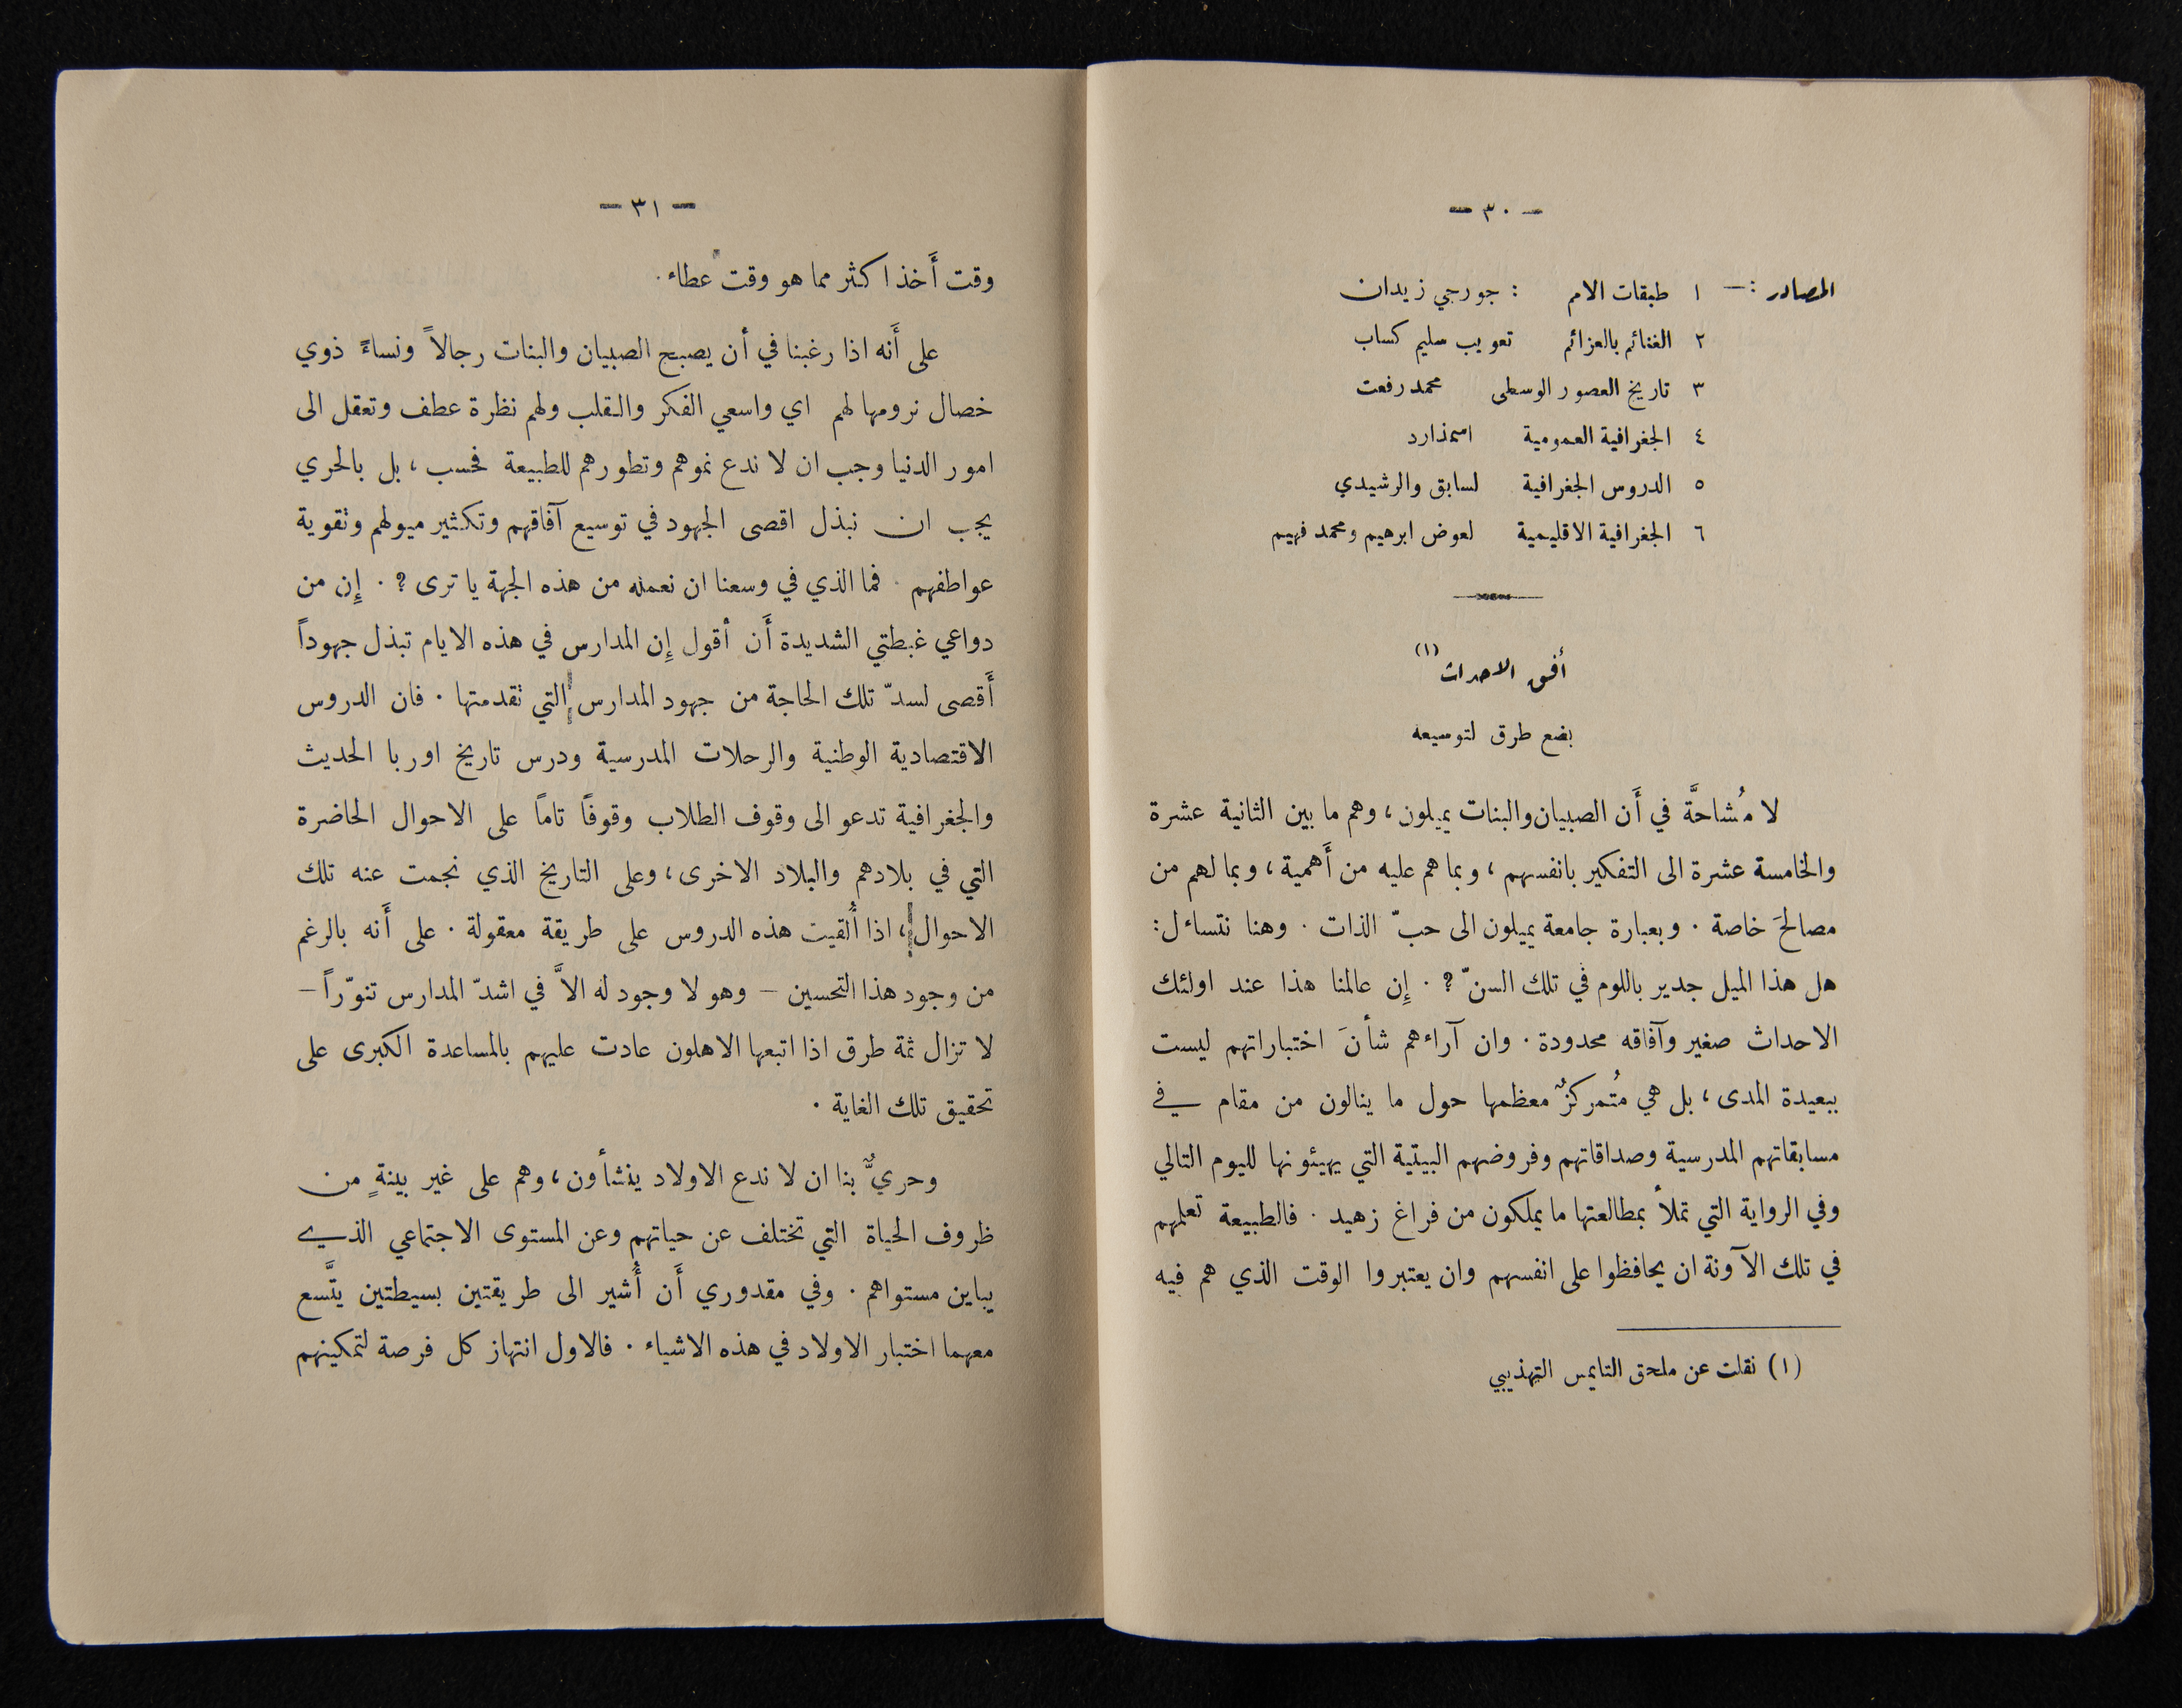 - ٣٠ -
المصادر :- ١ طبقات الامم : جورجي زيدان
٢ الغنائم بالعزائم تعريب سليم كساب
٣ تاريخ العصور الوسطى محمد رفعت
٤ الجغرافية العمومية اسمذارد
٥ الدروس الجغرافية لسابق والرشيدي
٦ الجغرافية الاقليمية لعوض ابرهيم ومحمد فهيم
أفق الاحداث (١)
بضع طرق لتوسيعه
لا مُشاحَّة في أَن الصبيان والبنات يميلون، وهم ما بين الثانية عشرة
والخامسة عشرة الى التفكير بانفسهم، وبما هم عليه من أَهمية، وبما لهم من
مصالحَ خاصة . وبعبارة جامعة يميلون الى حبّ الذات . وهنا نتساءل:
هل هذا الميل جدير باللوم في تلك السنّ ؟ . إِن عالمنا هذا عند اولئك
الاحداث صغير وآفاقه محدودة . وان آراءهم شأنَ اختباراتهم ليست
ببعيدة المدى، بل هي مُتمركزٌ معظمها حول ما ينالون من مقام في
مسابقاتهم المدرسية وصداقاتهم وفروضهم البيتية التي يهيئونها لليوم التالي
وفي الرواية التي تملأ بمطالعتها ما يملكون من فراغ زهيد . فالطبيعة تعلمهم
في تلك الآونة ان يحافظوا على انفسهم وان يعتبروا الوقت الذي هم فيه
(١) نقلت عن ملحق التايمس التهذيبي
- ٣١ -
وقت أَخذ اكثر مما هو وقت عطاء .
على أَنه اذا رغبنا في أن يصبح الصبيان والبنات رجالاً ونساءً ذوي
خصال نرومها لهم اي واسعي الفكر والقلب ولهم نظرة عطف وتعقل الى
امور الدنيا وجب ان لا ندع نموهم وتطورهم للطبيعة فحسب، بل بالحري
يجب ان نبذل اقصى الجهود في توسيع آفاقهم وتكثير ميولهم وتقوية
عواطفهم . فما الذي في وسعنا ان نعمله من هذه الجهة يا ترى ؟ . إِن من
دواعي غبطتي الشديدة أَن أقول إِن المدارس في هذه الايام تبذل جهوداً
أَقصى لسدّ تلك الحاجة من جهود المدارس التي تقدمتها . فان الدروس
الاقتصادية الوطنية والرحلات المدرسية ودرس تاريخ اوربا الحديث
والجغرافية تدعو الى وقوف الطلاب وقوفاً تاماً على الاحوال الحاضرة
التي في بلادهم والبلاد الاخرى، وعلى التاريخ الذي نجمت عنه تلك
الاحوال، اذا أُلقيت هذه الدروس على طريقة معقولة . على أَنه بالرغم
من وجود هذا التحسين - وهو لا وجود له الاَّ في اشدّ المدارس تنوّراً -
لا تزال ثمة طرق اذا اتبعها الاهلون عادت عليهم بالمساعدة الكبرى على
تحقيق تلك الغاية .
وحريٌّ بنا ان لا ندع الاولاد ينشأون، وهم على غير بينةٍ من
ظروف الحياة التي تختلف عن حياتهم وعن المستوى الاجتماعي الذي
يباين مستواهم . وفي مقدوري أَن أُشير الى طريقتين بسيطتين يتَّسع
معهما اختبار الاولاد في هذه الاشياء . فالاول انتهاز كل فرصة لتمكينهم